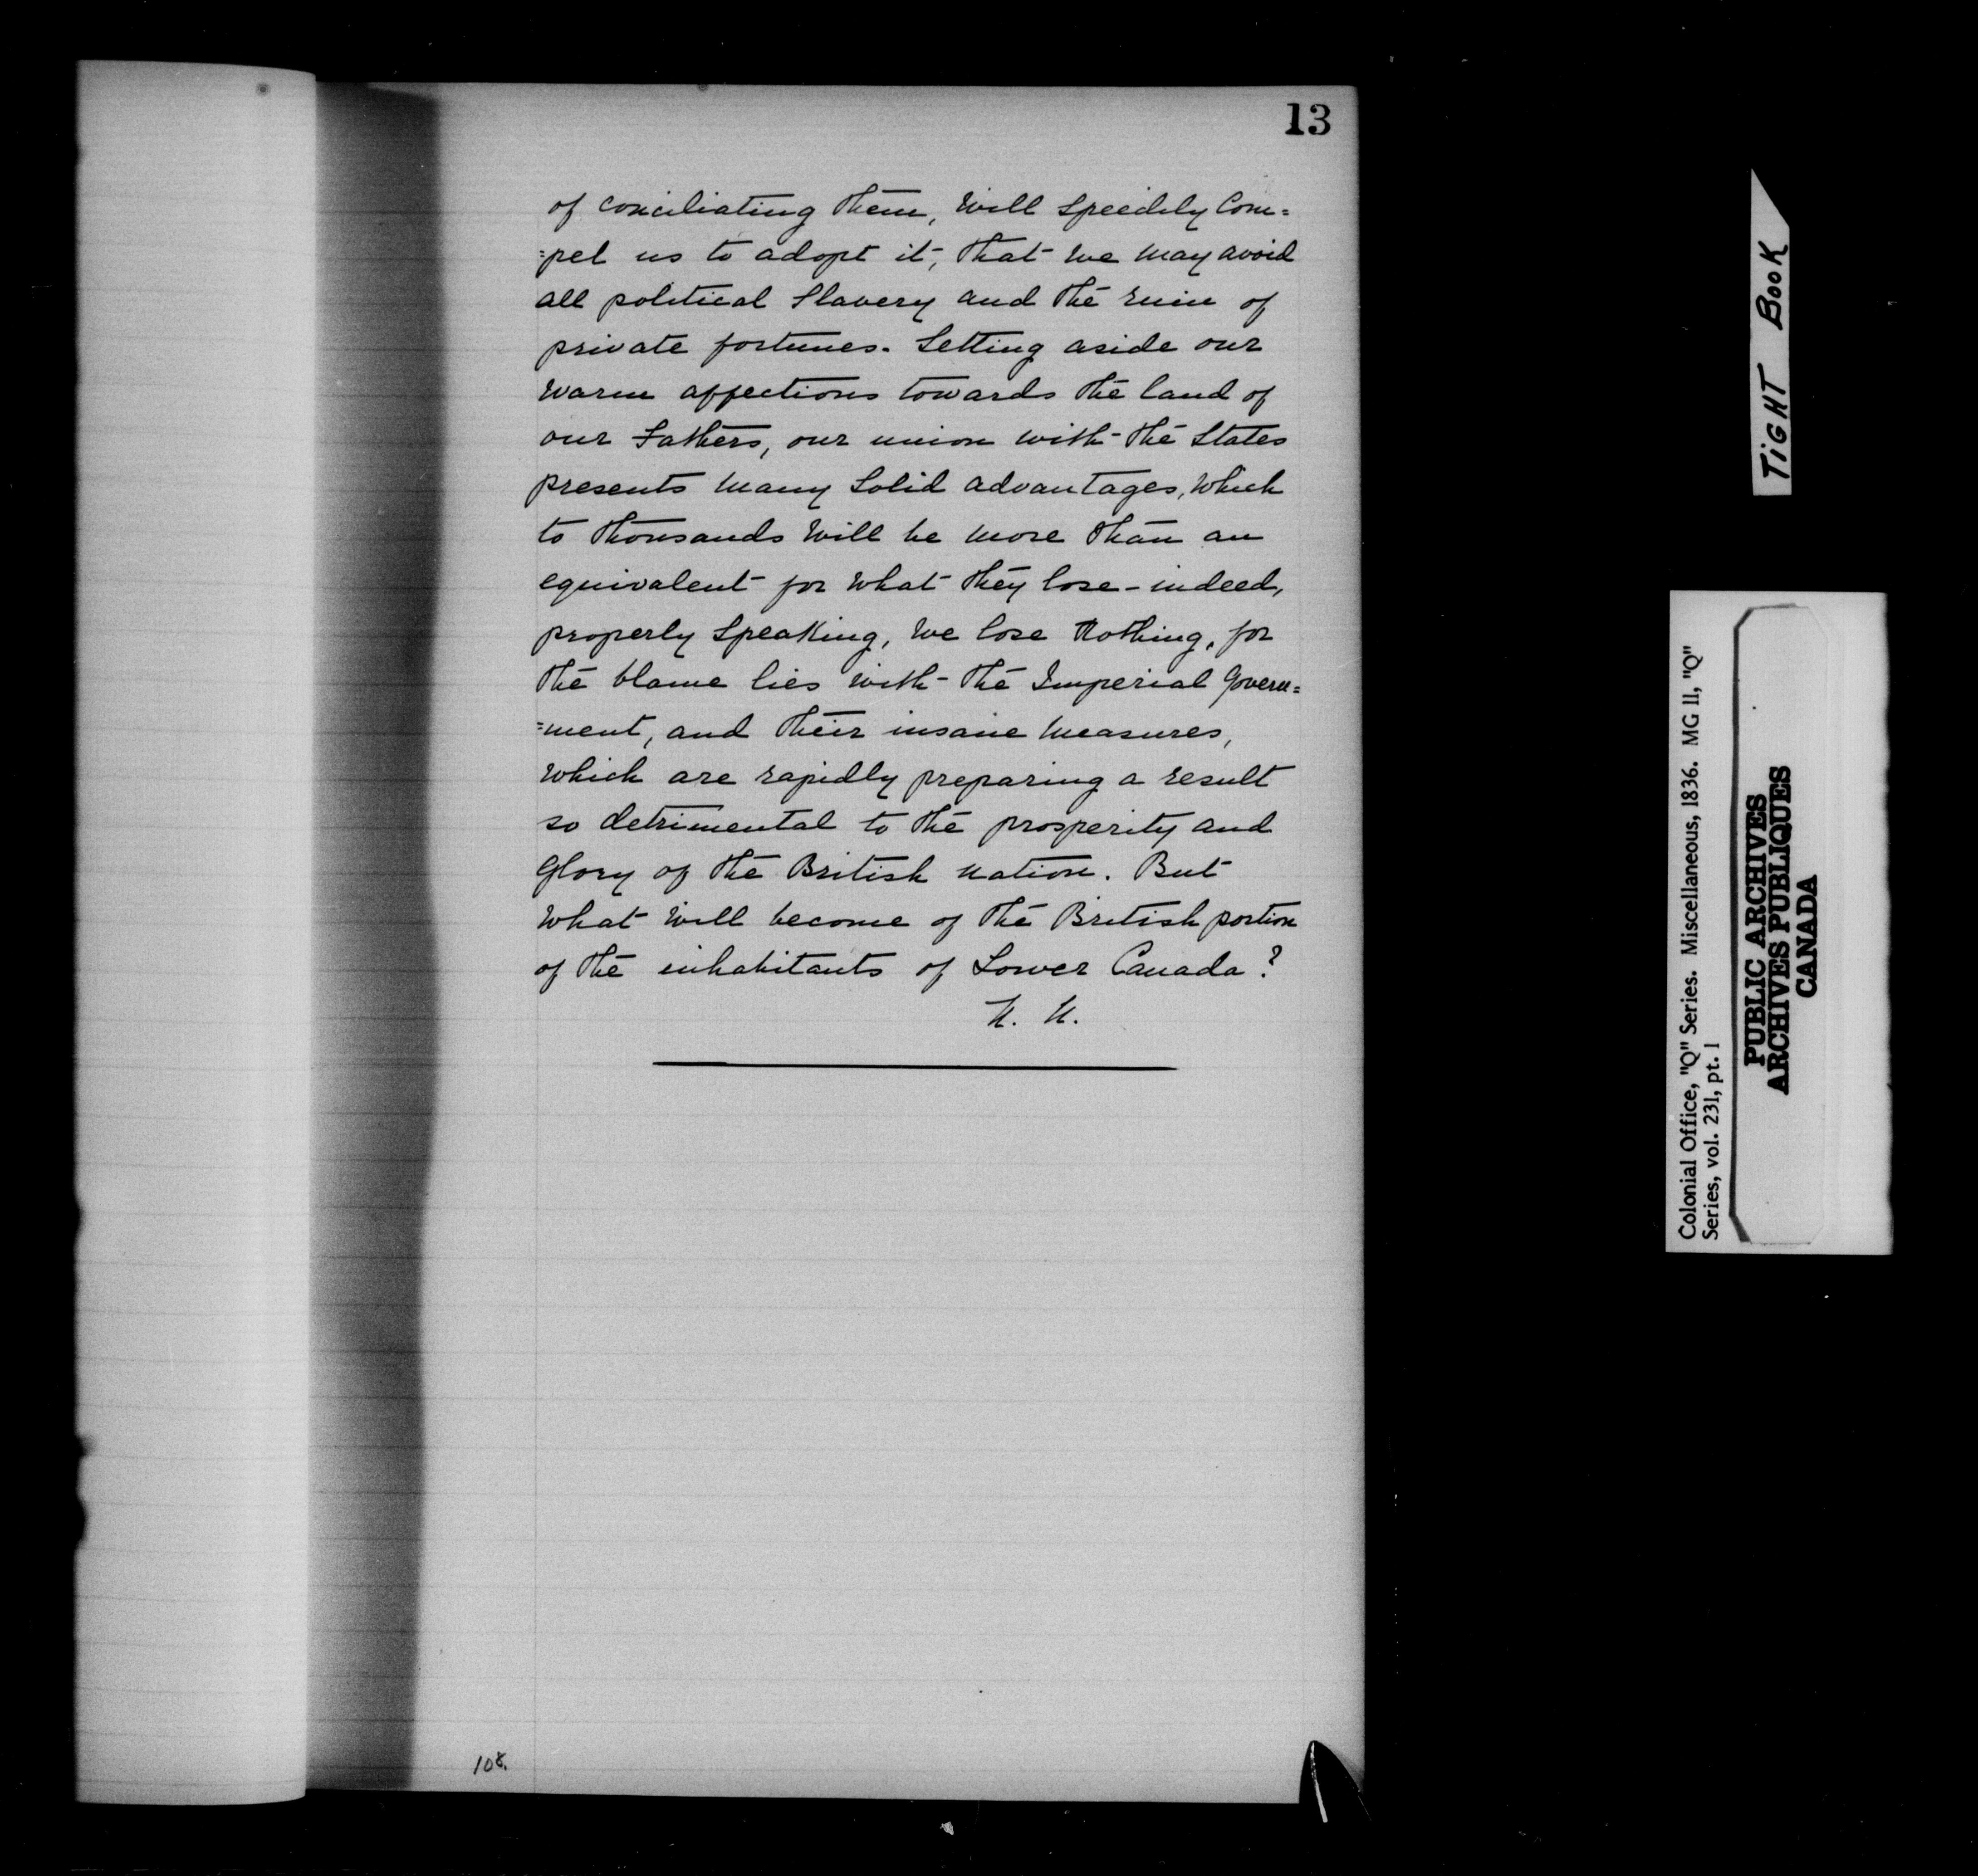 13
of conciliating them, will speedily Com=
=pel us to adopt it, that we may avoid
all political Slavery and the ruin of
private fortunes. Setting aside our
warm affections towards the land of
our Fathers, our union with the States
presents many Solid advantages, which
to thousands will be more than an
equivalent for what they lose - indeed,
properly speaking, we lose nothing, for
the blame lies with the Imperial Govern=
=ment, and their insane measures,
which are rapidly preparing a result
so detrimental to the prosperity and
Glory of the British nation. But
what will become of the British portion
of the inhabitants of Lower Canada?
108.
TIGHT BOOK
Colonial Office, "Q" Series. Miscellaneous, 1836. MG 11, "Q"
Series, vol. 231, pt. 1
PUBLIC ARCHIVES
ARCHIVES PUBLIQUES
CANADA